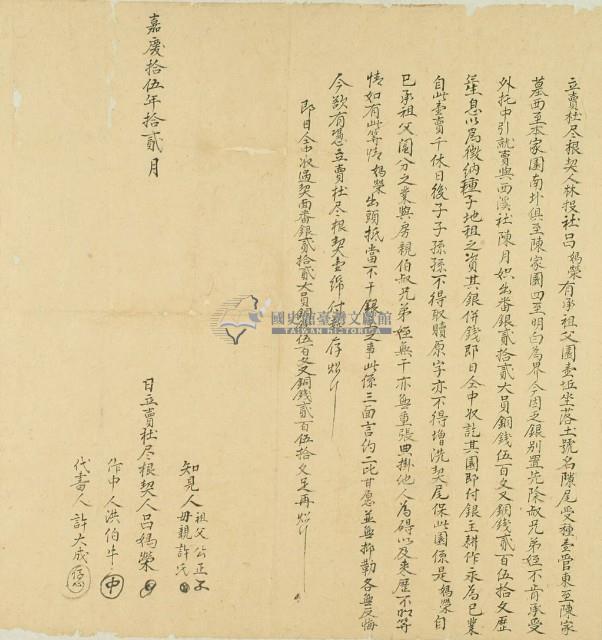 立賣杜尽根契人林投社呂媽榮有承祖父園壹坵坐落土號名隙尾受種壹管東至陳家
墓西至本家園南北俱至陳家園四至明白為界今因乏銀别置先除叔兄弟姪不肯承受
外托中引就賣與西溪社陳月娘出番銀貳拾貳大員銅錢伍百文又銅錢貳百伍拾文歴
年生息以為徵納種子地租之資其銀併錢即日仝中收訖其園即付銀主耕作永為己業
自此壹賣千休日後子子孫孫不得取贖原字亦不得增洗契尾保此園係是媽榮自
己承祖父鬮分之業與房親伯叔兄弟姪無干亦無重張典掛他人為碍以及来歴不明等
情如有此等情媽榮出頭抵當不干銀主之事此係三面言約二比甘愿並無抑勒各無反悔
今欲有憑立賣杜尽根契壹紙付執存炤
即日仝中收過契面番銀貳拾貳大員銅錢伍百文又銅錢貳百伍拾文足再炤
知見人 祖父 公正
母親許氏
日立賣杜尽根契人呂媽榮
作中人洪伯牛 中
代書人許大成
嘉慶拾伍年拾貳月
國史館臺灣文獻館
TAIWAN HISTORICA